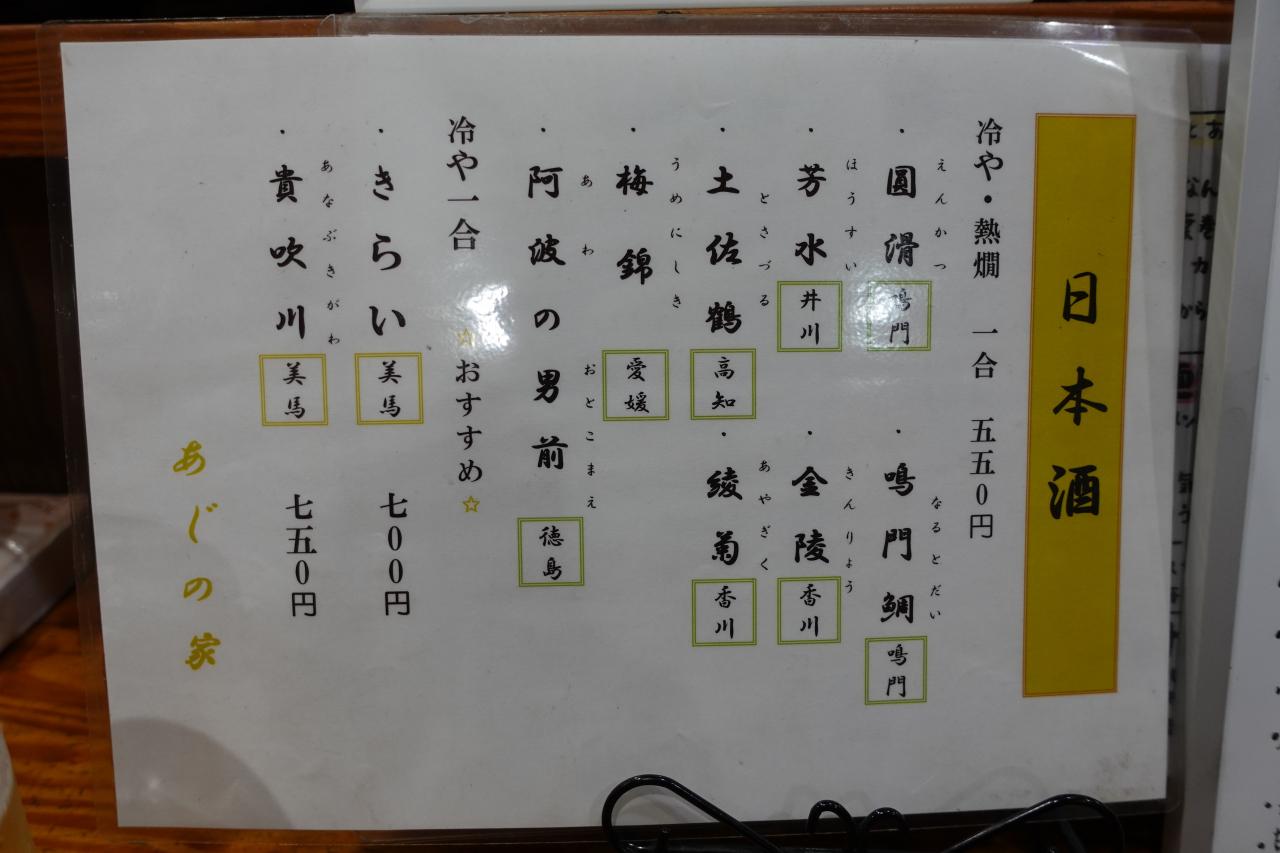 日本酒
冷や・熱燗 一合 五五０円
えんかつ
・圓滑 鳴門
なるとだい
・鳴門鯛 鳴門
ほうすい
・芳水 井川
きんりょう
・金陵 香川
とさづる
・土佐鶴 高知
あやぎく
・綾菊 香川
うめにしき
・梅錦 愛媛
あわ おとこまえ
・阿波の男前 徳島
冷や一合 ☆おすすめ☆
・きらい 美馬 七００円
あなぶきがわ
・貴吹川 美馬 七五０円
あじの家